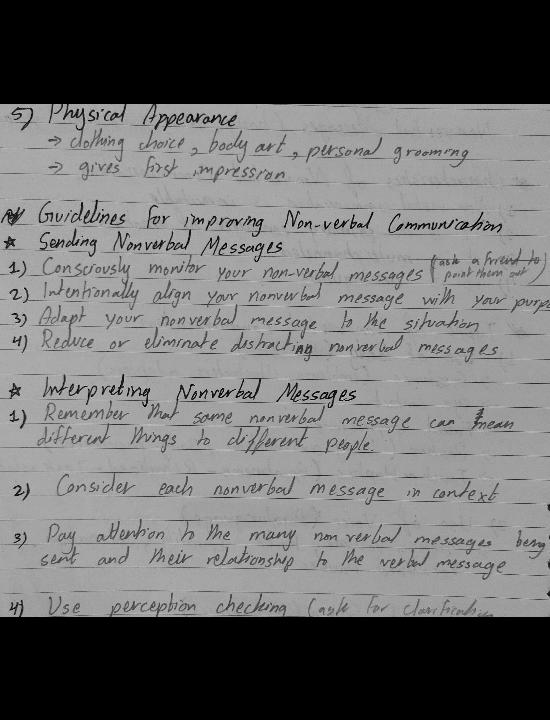 5) Physical Appearance
→ clothing choice, body art, personal grooming
→ gives first impression
Guidelines for improving Non-verbal Communication
★ Sending Nonverbal Messages
1) Consciously monitor your non-verbal messages (ask a friend to point them out)
2) Intentionally align your nonverbal message with your
3) Adapt your nonverbal message to the situation
4) Reduce or eliminate distracting nonverbal messages
★ Interpreting Nonverbal Messages
1) Remember that same nonverbal message can mean
different things to different people.
2) Consider each nonverbal message in context
3) Pay attention to the many non verbal messages being
sent and their relationship to the verbal message
4) Use perception checking (ask for clarification